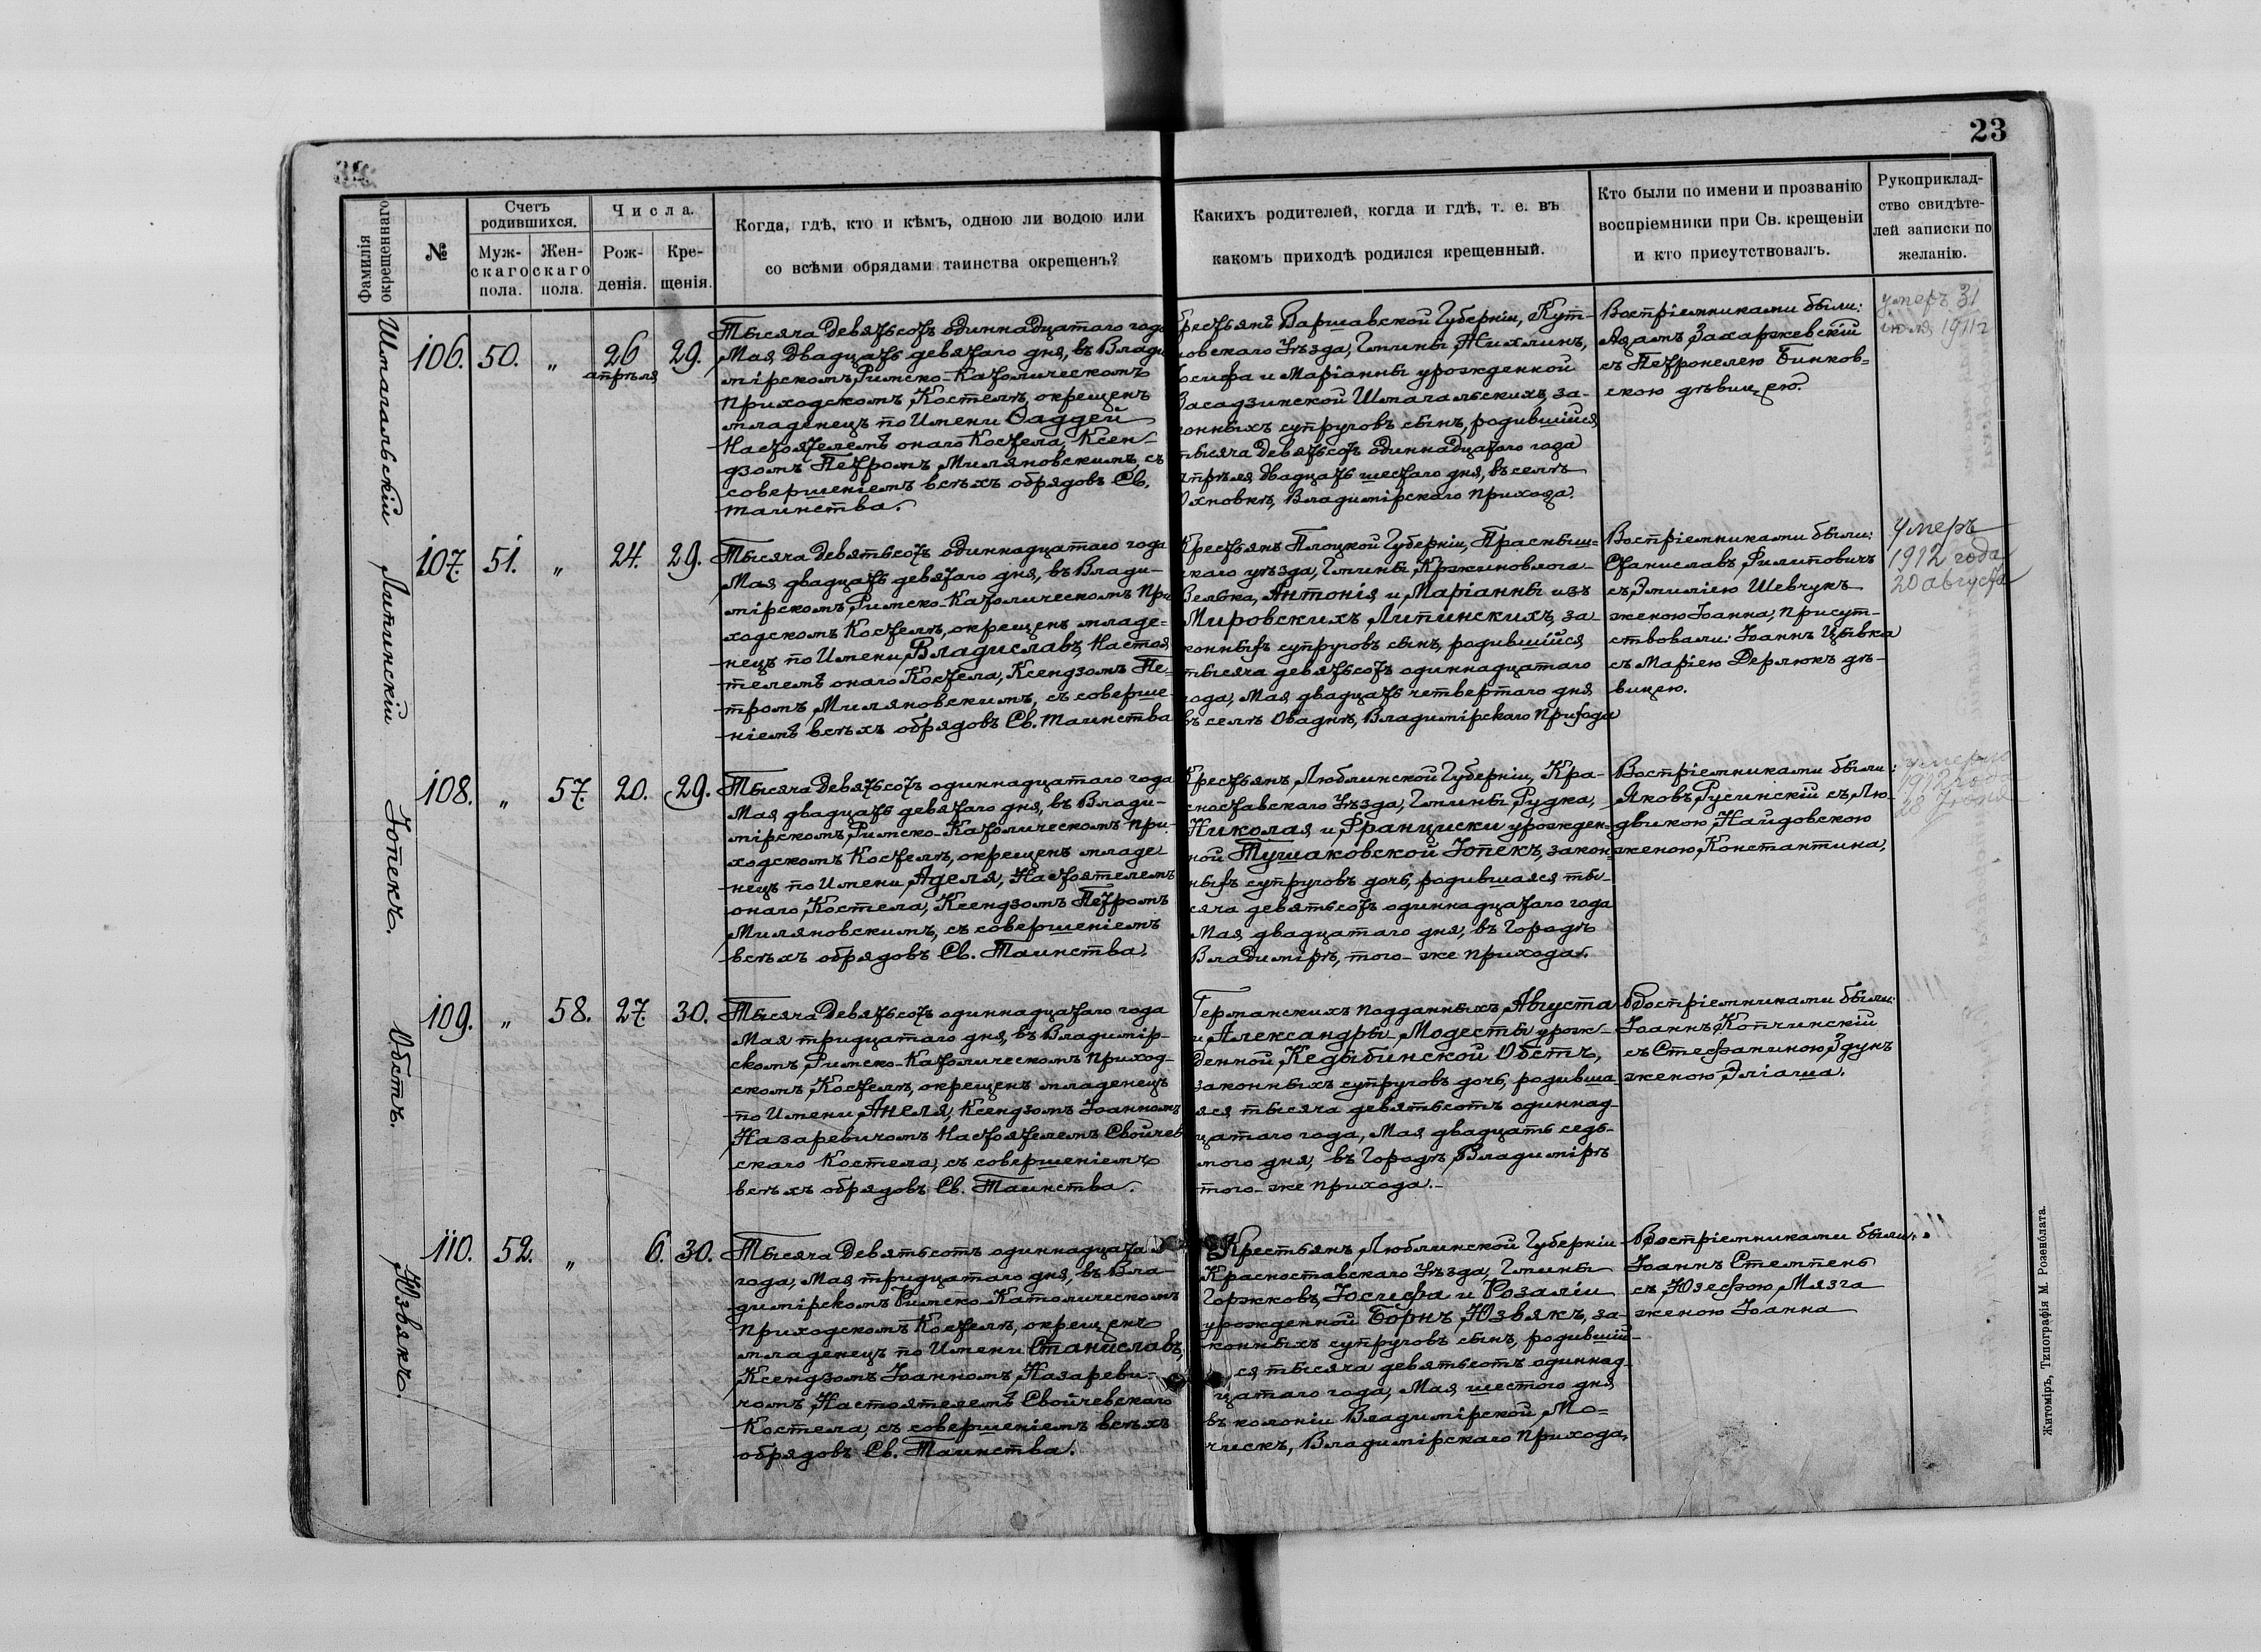 23
Фамилія
окрещеннаго
№
Счетъ
родившихся.
Муж-
скаго
пола.
Жен-
скаго
пола.
Числа.
Рож-
денія.
Кре-
щенія.
Когда, гдѣ, кто и кѣмъ, одною ли водою или
со всѣми обрядами таинства окрещенъ?
Какихъ родителей, когда и гдѣ, т. е. въ
какомъ приходѣ родился крещенный.
Кто были по имени и прозванію
воспріемники при Св. крещеніи
и кто присутствовалъ.
Рукоприклад-
ство свидѣте-
лей записки по
желанію.
Шмагальскій
106. 50. „ 26 29.
апрѣля
Тысяча девятьсотъ одиннадцатаго года
Мая двадцать девятаго дня, въ Влади
мірскомъ Римско-Католическомъ
приходскомъ Костелѣ, окрещенъ
младенецъ по Имени Ѳаддей
Настоятелемъ онаго Костела, Ксен-
дзомъ Петромъ Миляновскимъ, съ
совершеніемъ всѣхъ обрядовъ Св.
таинства.
Крестьянъ Варшавской Губерніи, Кут-
новскаго Уѣзда, Гмины Жихлинъ,
Іосифа и Маріанны урожденной
Засадзинской Шмагальскихъ, за-
конныхъ супруговъ сынъ, родившійся
тысяча девятьсотъ одиннадцатаго года
апрѣля двадцать шестаго дня, въ селѣ
Охновкѣ, Владимірскаго прихода.
Воспріемниками были:
Адамъ Захаржевскій
съ Петронелею Бинков=
скою дѣвицею.
умеръ 31
іюля 1911 г
Липинскій
107. 51. „ 24. 29.
Тысяча девятьсотъ одиннадцатаго года
Мая двадцать девятаго дня, въ Влади-
мірскомъ Римско-Католическомъ При
ходскомъ Костелѣ, окрещенъ младе=
нецъ по Имени Владиславъ, Настоя
телемъ онаго Костела, Ксендзомъ Пе=
тромъ Миляновскимъ, съ соверше-
ніемъ всѣхъ обрядовъ Св. таинства
Крестьянъ Плоцкой Губерніи, Прасныш=
скаго уѣзда, Гмины Кржиновлога-
Велька, Антонія и Маріанны изъ
Мировскихъ Липинскихъ, за
конныхъ супруговъ сынъ, родившійся
тысяча девятьсотъ одиннадцатаго
года, Мая двадцать четвертаго дня
въ селѣ Оваднѣ, Владимірскаго Прихода
Воспріемниками были:
Станиславъ Филиповичъ
съ Эмиліею Шевчукъ
женою Іоанна, присут-
ствовали: Іоаннъ Цывка
съ Маріею Дерлюкъ дѣ-
вицею.
Умеръ
1912 года
20 августа
Іопекъ.
108. „ 57. 20. 29.
Тысяча девятьсотъ одиннадцатаго года
Мая двадцать девятаго дня, въ Влади-
мірскомъ Римско-Католическомъ при
ходскомъ Костелѣ, окрещенъ младе
нецъ по Имени Аделя, Настоятелемъ
онаго Костела, Ксендзомъ Петромъ
Миляновскимъ, съ совершеніемъ
всѣхъ обрядовъ Св. Таинства.
Крестьянъ Люблинской Губерніи, Кра-
сноставскаго Уѣзда, Гмины Рудка,
Николая и Франциски урожден-
ной Тушаковской Іопекъ, закон-
ныхъ супруговъ дочь, родившаяся ты-
сяча девятьсотъ одиннадцатаго года
Мая двадцатаго дня, въ Городѣ
Владимірѣ, того-же прихода.
Воспріемниками были:
Яковъ Русинскій съ Лю-
двикою Найдовскою
женою Константина.
умерла
1912 года
28 Іюня
Обстъ.
109. „ 58. 27 30.
Тысяча девятьсотъ одиннадцатаго года
Мая тридцатаго дня, въ Владимір-
скомъ Римско-Католическомъ приход-
скомъ Костелѣ, окрещенъ младенецъ
по Имени Анеля, Ксендзомъ Іоанномъ
Назаревичомъ Настоятелемъ Свойчев
скаго Костела, съ совершеніемъ
всѣхъ обрядовъ Св. Таинства.
Германскихъ подданныхъ, Августа
и Александры-Модесты урож-
денной Кедыбинской Обстъ,
законныхъ супруговъ дочь, родивша
яся тысяча девятьсотъ одиннад-
цатаго года, Мая двадцать седь-
мого дня, въ Городѣ Владимірѣ
того-же прихода.-
Воспріемниками были:
Іоаннъ Копчинскій
съ Стефаниною Здунъ
женою Эліаша.
Юзвякъ.
110. 52. „ 6. 30.
Тысяча девятьсотъ одиннадцатаго
года, Мая тридцатаго дня, въ Вла-
димірскомъ Римско-Католическомъ
приходскомъ Костелѣ, окрещенъ
младенецъ по Имени Станиславъ,
Ксендзомъ Іоанномъ Назареви-
чомъ, Настоятелемъ Свойчевскаго
Костела, съ совершеніемъ всѣхъ
обрядовъ Св. Таинства.
Крестьянъ Люблинской Губерніи
Красноставскаго Уѣзда, Гмины
Горжковъ, Іосифа и Розаліи
урожденной Борнъ Юзвякъ, за-
конныхъ супруговъ сынъ, родившій-
ся тысяча девятьсотъ одиннад-
цатаго года, Мая шестого дня
въ колоніи Владимірской Мо=
чискъ, Владимірскаго прихода.
Воспріемниками были:
Іоаннъ Стемпень
съ Юзефою Мязга
женою Іоанна
Житоміръ, Типографія М. Розенблата.